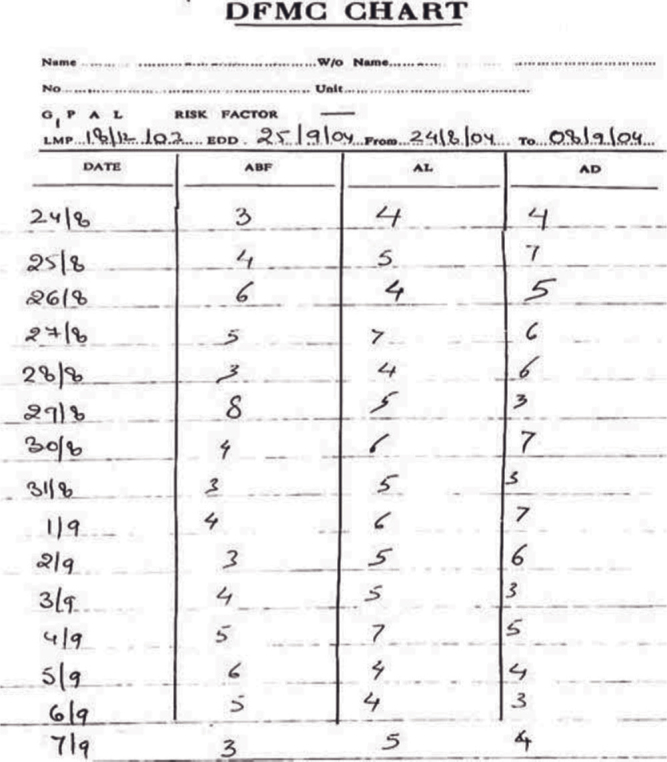 DFMC CHART
Name ........ W/o Name........
No ........ Unit........
G, P A L RISK FACTOR —
LMP 18/12/03 EDD. 25/9/04 From 24/8/04 To 08/9/04
DATE ABF AL AD
24/8 3 4 4
25/8 4 5 7
26/8 6 4 5
27/8 5 7 6
28/8 3 4 6
29/8 8 5 3
30/8 4 6 7
31/8 3 5 3
1/9 4 6 7
2/9 3 5 6
3/9 4 5 3
4/9 5 7 5
5/9 6 4 4
6/9 5 4 3
7/9 3 5 4